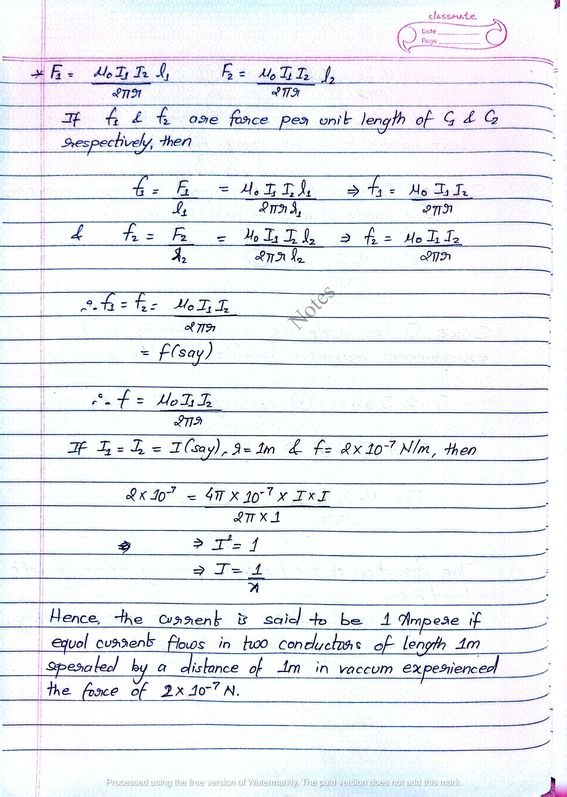 classmate
Date
Page
→ F₁ = μ₀ I₁ I₂ l₁ / 2πr    F₂ = μ₀ I₁ I₂ l₂ / 2πr
If f₁ & f₂ are force per unit length of C₁ & C₂
respectively, then
f₁ = F₁ / l₁ = μ₀ I₁ I₂ l₁ / 2πr l₁ ⇒ f₁ = μ₀ I₁ I₂ / 2πr
& f₂ = F₂ / l₂ = μ₀ I₁ I₂ l₂ / 2πr l₂ ⇒ f₂ = μ₀ I₁ I₂ / 2πr
Notes
∴ f₁ = f₂ = μ₀ I₁ I₂ / 2πr
= f(say)
∴ f = μ₀ I₁ I₂ / 2πr
If I₁ = I₂ = I (say), r = 1m & f = 2 × 10⁻⁷ N/m, then
2 × 10⁻⁷ = 4π × 10⁻⁷ × I × I / 2π × 1
⇒ ⇒ I² = 1
⇒ I = 1 /
Hence, the current is said to be 1 Ampere if
equal current flows in two conductors of length 1m
seperated by a distance of 1m in vaccum experienced
the force of 2 × 10⁻⁷ N.
Processed using the free version of Watermarkly. The paid version does not add this mark.